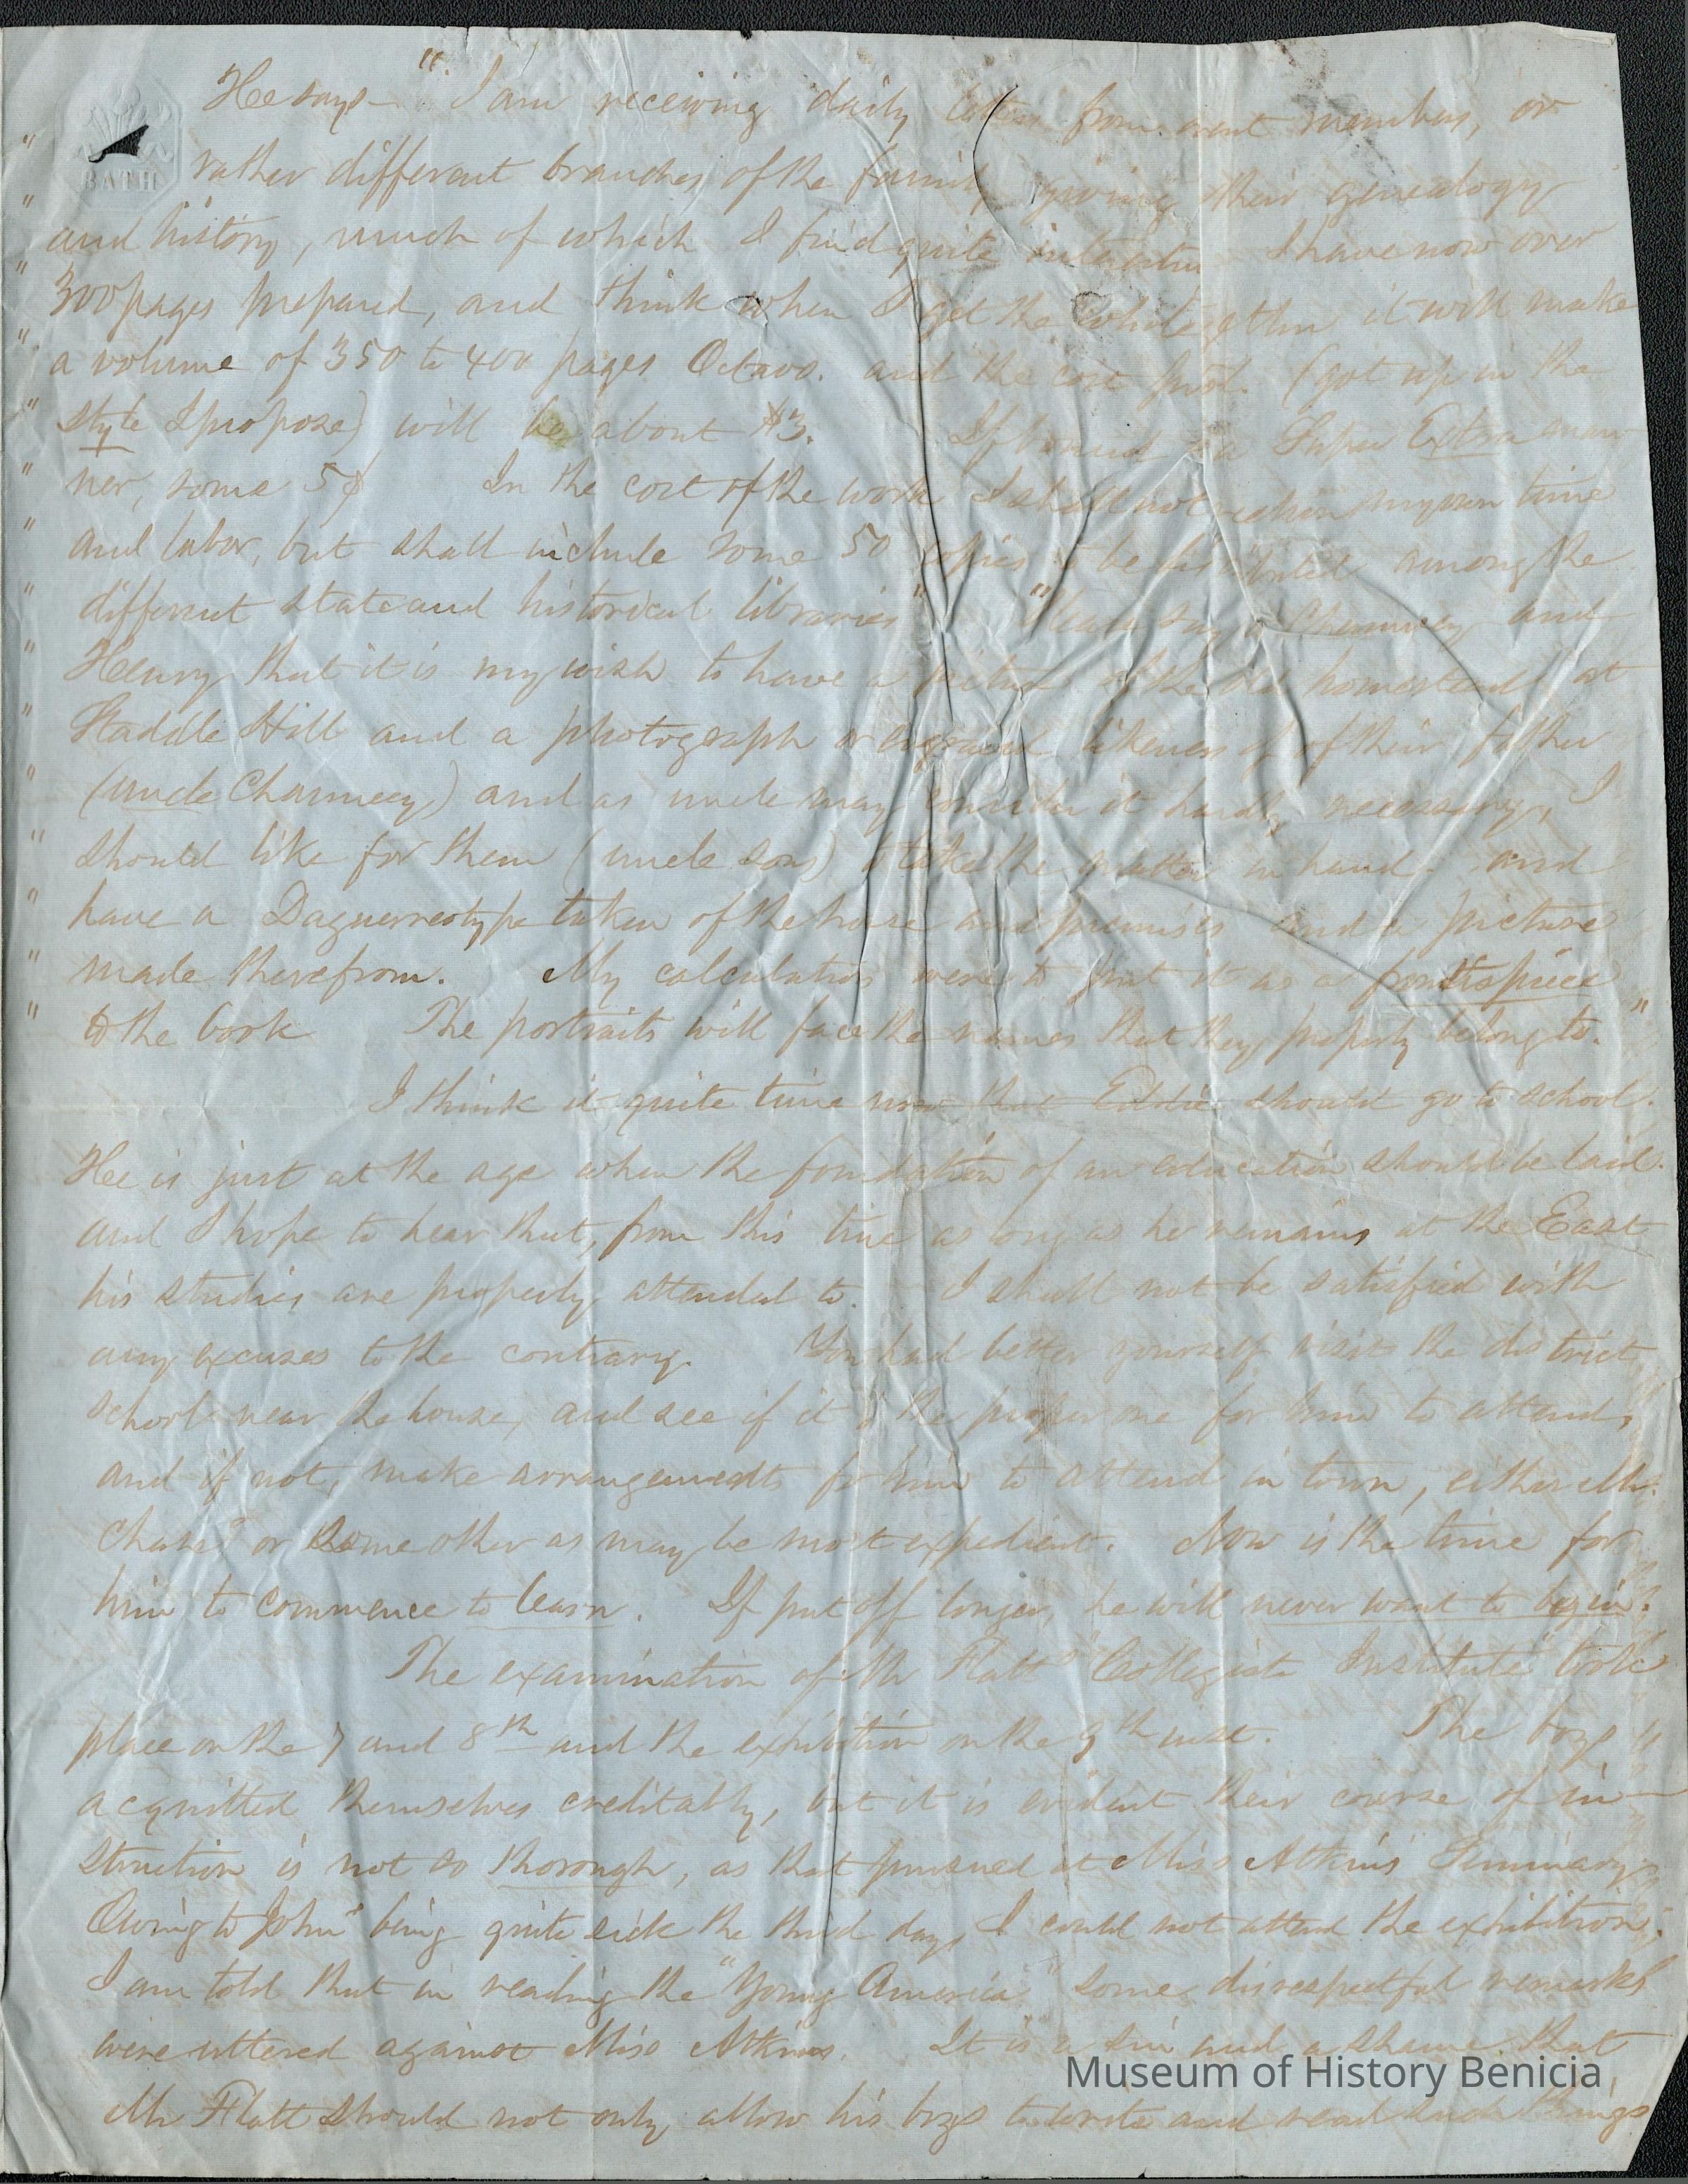 BATH
He says — "I am receiving daily letters from members, or
" rather different branches of the family giving their genealogy
" and history, much of which I find quite interesting I have now over
" 300 pages prepared, and think when I get the whole it will make
" a volume of 350 to 400 pages Octavo. and the cost (got up in the
" style I propose) will be about $3. If bound in a Super Extra man-
" ner, some 5$ In the cost of the work I shall not reckon my own time
" and labor, but shall include some 50 copies to be distributed among the
" different state and historical libraries" "Please say to Chauncey and
" Henry that it is my wish to have a picture of the old homestead at
" Staddle Hill and a photograph or engraved likeness of their father
" (uncle Chauncey) and as uncle may consider it hardly necessary, I
" should like for them (uncle sons) to take the matter in hand. and
" have a Daguerreotype taken of the house and premises and a picture
" made therefrom. My calculation were to put it as a frontispiece
" to the book The portraits will face the names that they properly belong to."
I think it quite time now that Eddie should go to school.
He is just at the age when the foundation of an education should be laid.
and I hope to hear that, from this time as long as he remains at the East
his studies are properly attended to. I shall not be satisfied with
any excuses to the contrary. You had better yourself visit the district
school near the house, and see if it is the proper one for him to attend,
and if not, make arrangements for him to attend in town, either Mr.
Chase's or some other as may be most expedient. Now is the time for
him to commence to learn. If put off longer, he will never want to begin.
The examination of Mr Flatt's "Collegiate Institute" took
place on the 7 and 8th and the exhibition on the 9th inst. The boys
acquitted themselves creditably, but it is evident their course of in-
struction is not so thorough, as that pursued at Miss Atkins Seminary.
Owing to John's being quite sick the third day, I could not attend the exhibition.
I am told that in reading the "Young America" some disrespectful remarks
were uttered against Miss Atkins. It is a sin and a shame that
Mr Flatt should not only allow his boys to write and read such things
Museum of History Benicia